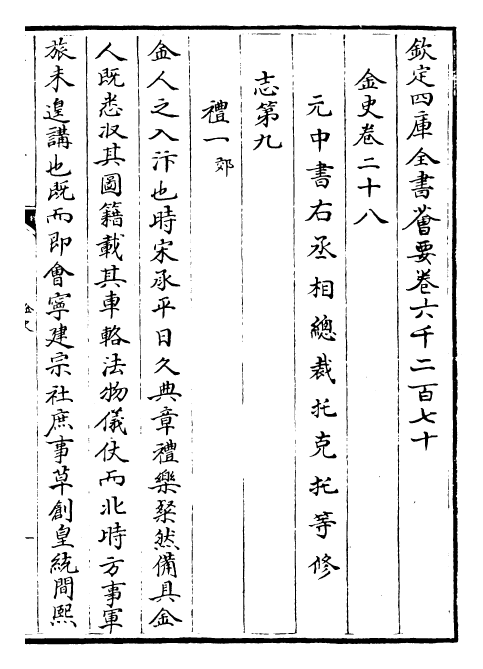 欽定四庫全書薈要卷六千二百七十
金史卷二十八
元中書右丞相總裁托克托等修
志第九
禮一郊
金人之入汴也時宋承平日久典章禮樂粲然備具金
人既悉收其圖籍載其車輅法物儀仗而北時方事軍
旅未遑講也既而即會寧建宗社庶事草創皇統間熙
金史
一